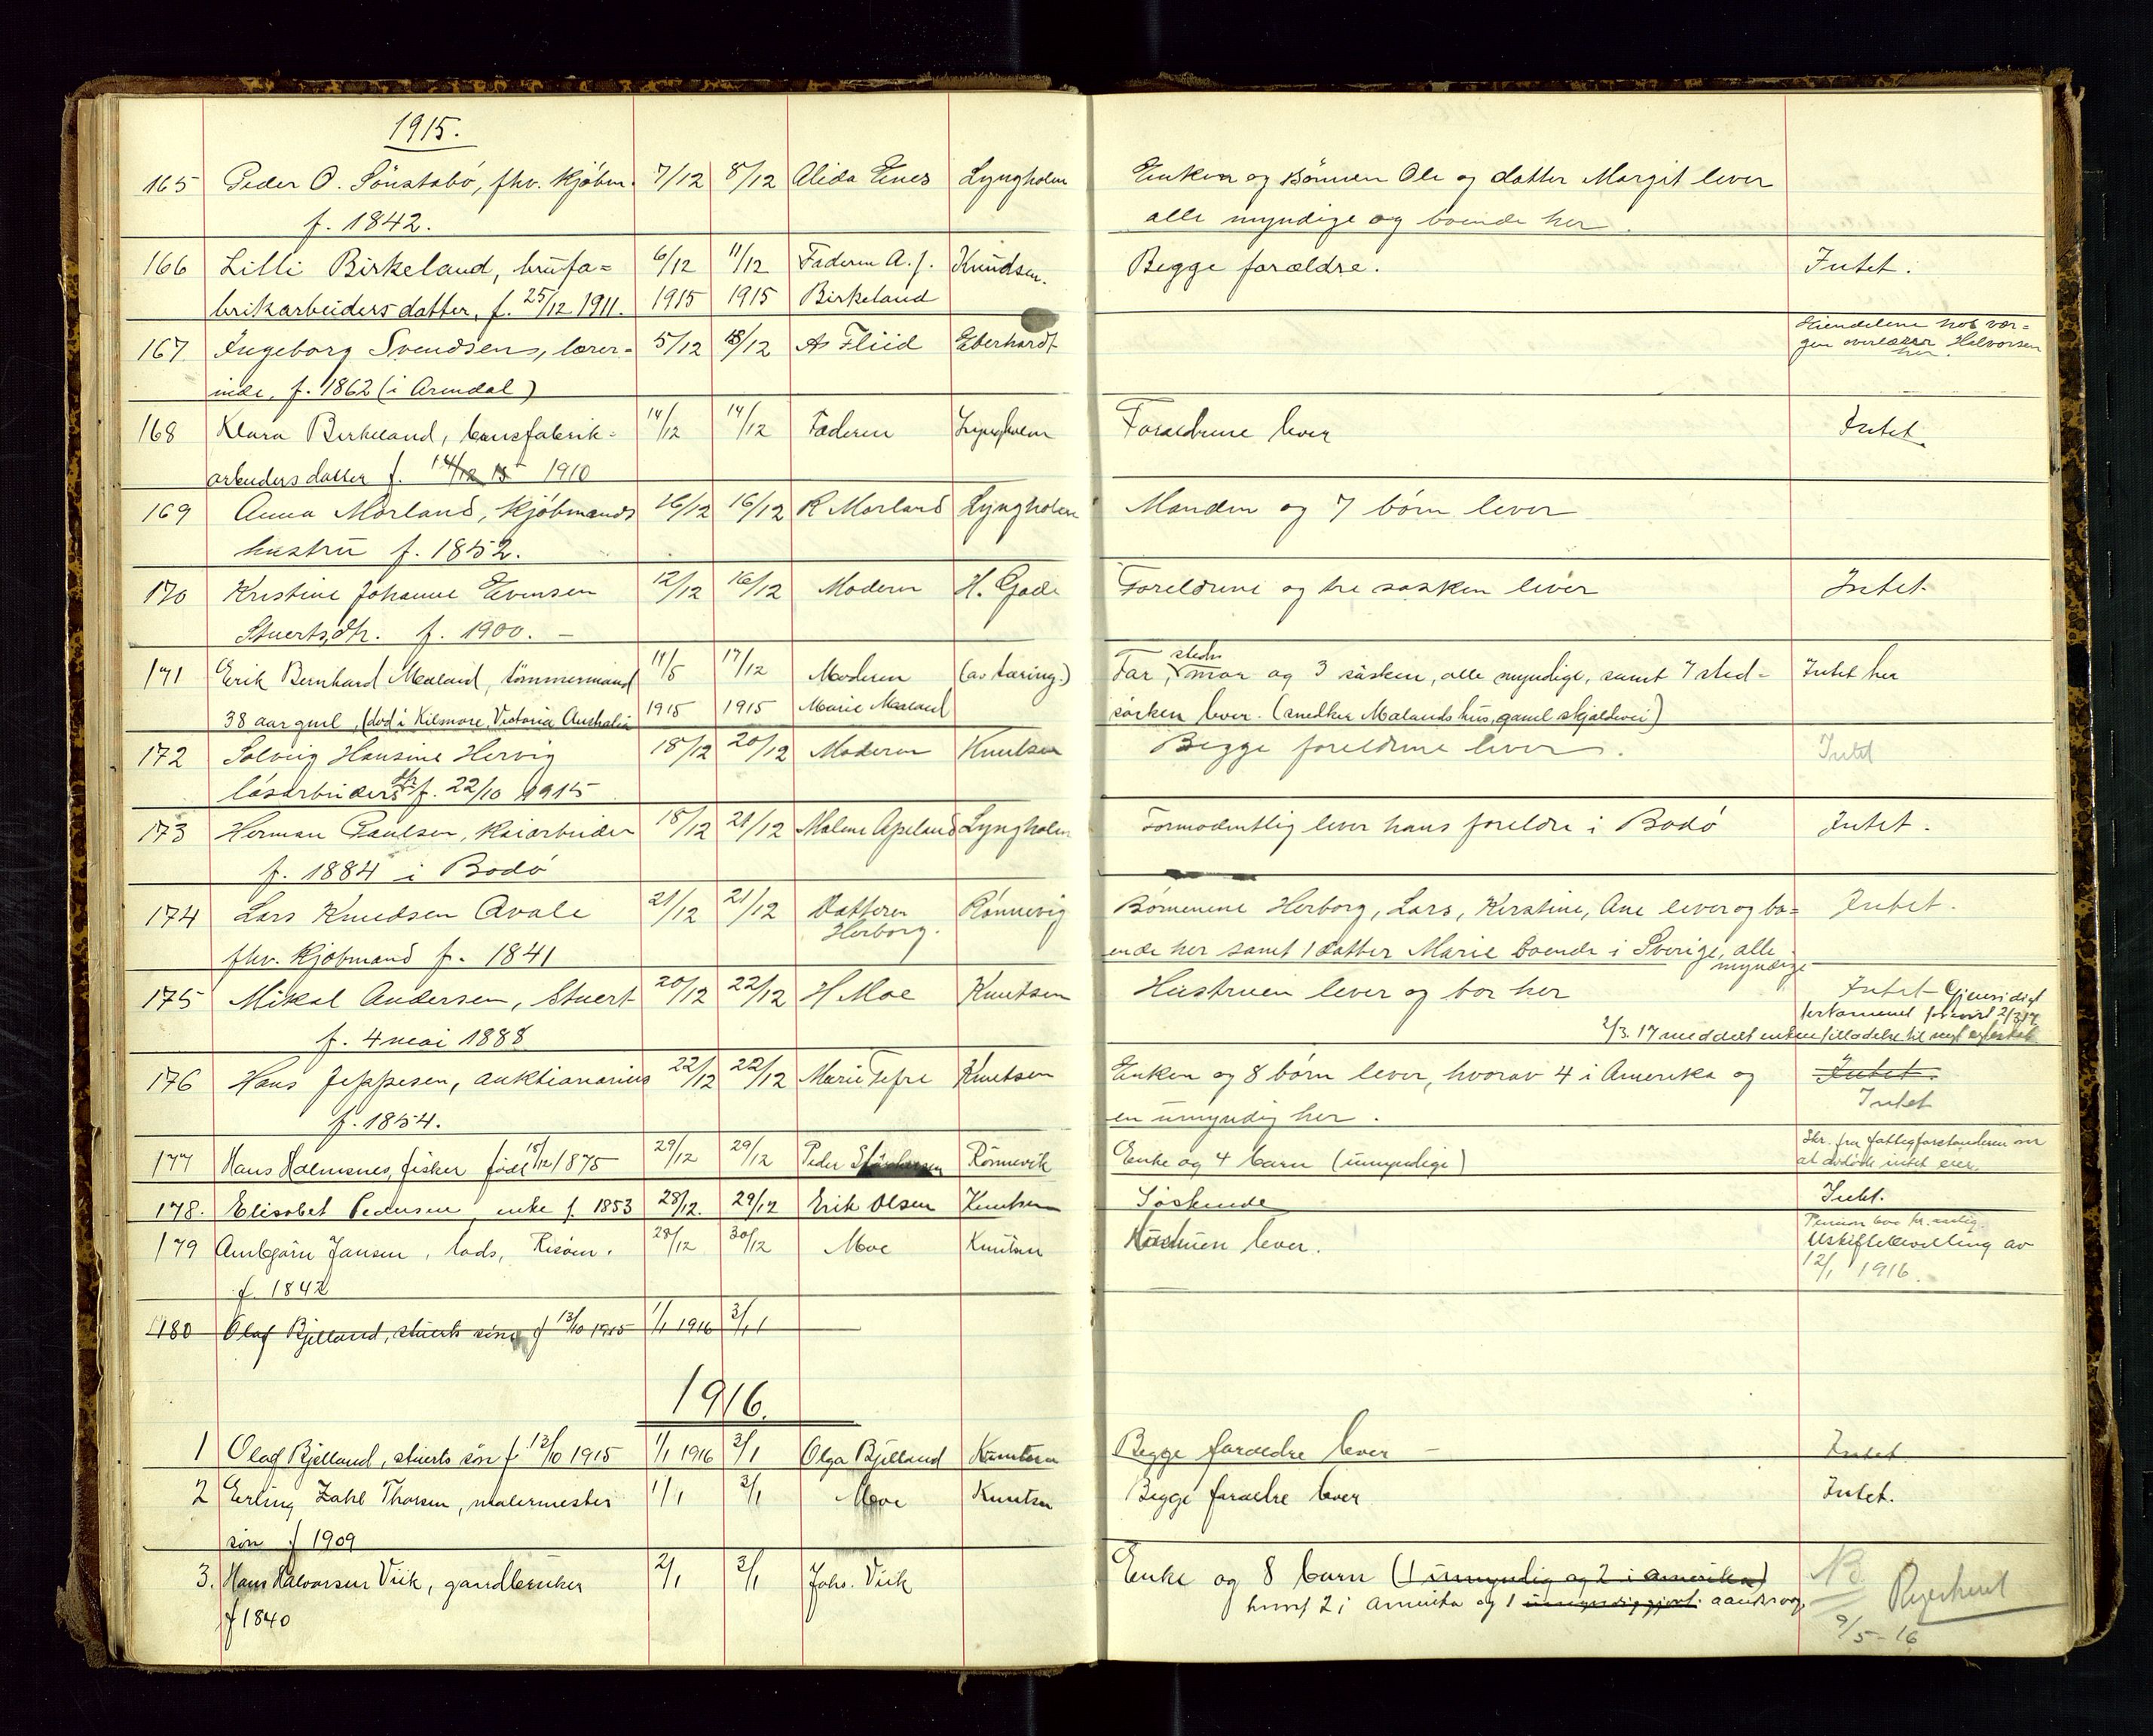 1915.
165 Peder O. Sönstabö, fhv. kjöbm. 7/12 8/12 Alida Enes Lyngholm Enken og sönnen Ole og datter Margit lever
f. 1842. alle myndige og boende her.
166 Lilli Birkeland, 6/12 11/12 Faderen A. J. Knudsen. Begge forældre. Intet.
brikarbeiders datter, f. 25/12 1911. 1915 1915 Birkeland
167 Ingeborg Svendsen, lærer- 5/12 13/12 Eberhardt
inde, f. 1862 (i Arendal) gen overlærer Halvorsen
her.
168 Klara Birkeland, 14/12 14/12 Faderen Lyngholm Forældrene lever Intet.
arbeiders datter f. 14/12 15 1910
169 Anna Mörland, kjöbmands 16/12 16/12 R Mörland Lyngholm Manden og 7 börn lever
hustru f. 1852.
170 Kristine Johanne Evensen 12/12 16/12 Moderen H. Gade Foreldrene og tre sösken lever Intet.
Stuerts dtr. f. 1900. –
171 Erik Bernhard Maland, tömmermand 11/5 17/12 Moderen (av tæring.) Far, stedmor og 3 sösken, alle myndige, samt 7 sted- Intet her
38 aar gml., (död i Kilmore, Victoria Australia 1915 1915 Marie Maaland sösken lever. (snedker Malands hus, gaml skjoldevei)
172 Solveig Hansine Hervig 18/12 20/12 Moderen Knutsen Begge foreldrene lever. Intet
lösarbeiders dtr f. 22/10 1915
173 Herman Paulsen, kaiarbeider 18/12 21/12 Malene Apeland Lyngholm Formodentlig lever hans foreldre i Bodö Intet.
f. 1884 i Bodö
174 Lars Knudsen Kvale 21/12 21/12 Datteren Rönnevig Börnene Herborg, Lars, Kirstine, Ane lever og bo- Intet.
Herborg.
fhv. kjöbmand f. 1841 ende her samt 1 datter Marie boende i Sverige, alle
myndige
175 Mikal Andersen, Stuert 20/12 22/12 H Moe Knutsen Hustruen lever og bor her Intet Gjensidigt
f. 4 mai 1888 2/3. 17 meddelt enken tilladelse til nyt egteskab
176 Hans Jeppesen, auktionarius 22/12 22/12 Marie Tefre Knutsen Enken og 8 börn lever, hvorav 4 i Amerika og Intet.
f. 1854. en umyndig her. Intet
177 Hans Halmsnes, fisker född 15/12 1875 29/12 29/12 Peder Rönnevik Enke og 4 barn (umyndige) Skr. fra fattigforstanderen om
at avdöde intet eier.
178. Elisabet Pedersen enke f. 1853 28/12. 29/12 Erik Olsen Knutsen Söskende Intet.
179 Jansen, lods, Risöen. 28/12 30/12 Moe Knutsen Hustruen lever. Pension
Uskiftebevilling av
f. 1842 12/1 1916.
180 Olaf Bjelland, stuerts sön f 13/10 1915 1/1 1916 3/1
1916.
1 Olaf Bjelland, stuerts sön f. 13/10 1915 1/1 1916 3/1 Olga Bjelland Knutsen Begge forældre lever – Intet
2 Erling Zahl Thorsen, malermester 1/1 3/1 Moe Knutsen Begge forældre lever Intet.
sön f 1909
3. Hans Halvorsen Viik, gaardbruker 2/1 3/1 Johs. Viik Enke og 8 barn (1 umyndig og 2 i Amerika) NB
f 1840 hvoraf 2 i Amerika og 1 umyndiggjort.
9/5 - 16